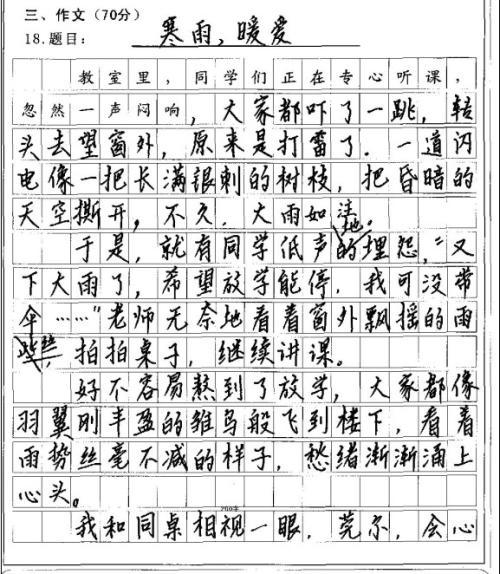 三、作文（70分）
18.题目： 寒雨，暖爱
教室里，同学们正在专心听课，
忽然一声闷响，大家都吓了一跳，转
头去望窗外，原来是打雷了．一道闪
电像一把长满银刺的树枝，把昏暗的
天空撕开，不久．大雨如注．
于是，就有同学低声地埋怨，“又
下大雨了，希望放学能停，我可没带
伞……”老师无奈地看着窗外飘摇的雨
丝，拍拍桌子，继续讲课。
好不容易熬到了放学，大家都像
羽翼刚丰盈的雏鸟般飞到楼下，看着
雨势丝毫不减的样子，愁绪渐渐涌上
心头。
我和同桌相视一眼，莞尔，会心